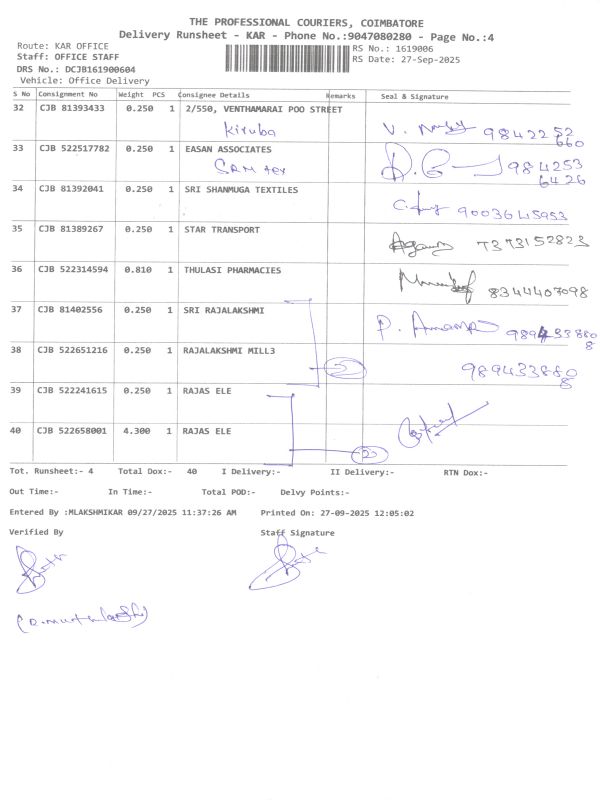 THE PROFESSIONAL COURIERS, COIMBATORE
Delivery Runsheet - KAR - Phone No.:9047080280 - Page No.:4
Route: KAR OFFICE RS No.: 1619006
Staff: OFFICE STAFF RS Date: 27-Sep-2025
DRS No.: DCJB161900604
Vehicle: Office Delivery
S No Consignment No Weight PCS Consignee Details Remarks Seal & Signature
32 CJB 81393433 0.250 1 2/550, VENTHAMARAI POO STREET
Kituba V. 98422 52
660
33 CJB 522517782 0.250 1 EASAN ASSOCIATES
SRM tex 984253
6426
34 CJB 81392041 0.250 1 SRI SHANMUGA TEXTILES
9003645953
35 CJB 81389267 0.250 1 STAR TRANSPORT
7373152823
36 CJB 522314594 0.810 1 THULASI PHARMACIES
8344407098
37 CJB 81402556 0.250 1 SRI RAJALAKSHMI
P. 989433880
8
38 CJB 522651216 0.250 1 RAJALAKSHMI MILL3
2 989433880
8
39 CJB 522241615 0.250 1 RAJAS ELE
40 CJB 522658001 4.300 1 RAJAS ELE
2
Tot. Runsheet:- 4 Total Dox:- 40 I Delivery:- II Delivery:- RTN Dox:-
Out Time:- In Time:- Total POD:- Delvy Points:-
Entered By :MLAKSHMIKAR 09/27/2025 11:37:26 AM Printed On: 27-09-2025 12:05:02
Verified By Staff Signature